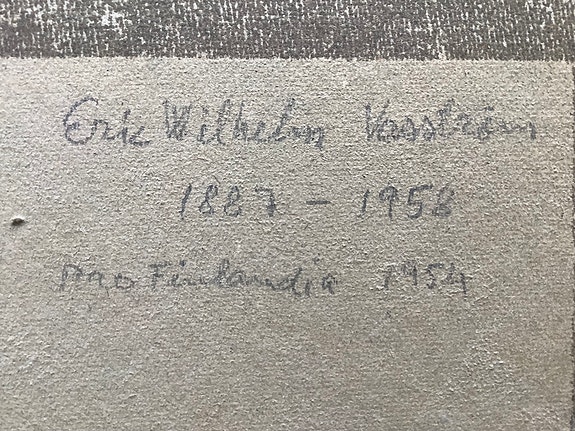 Erik Wilhelm Vasström
1887 - 1958
Finlandia 1954